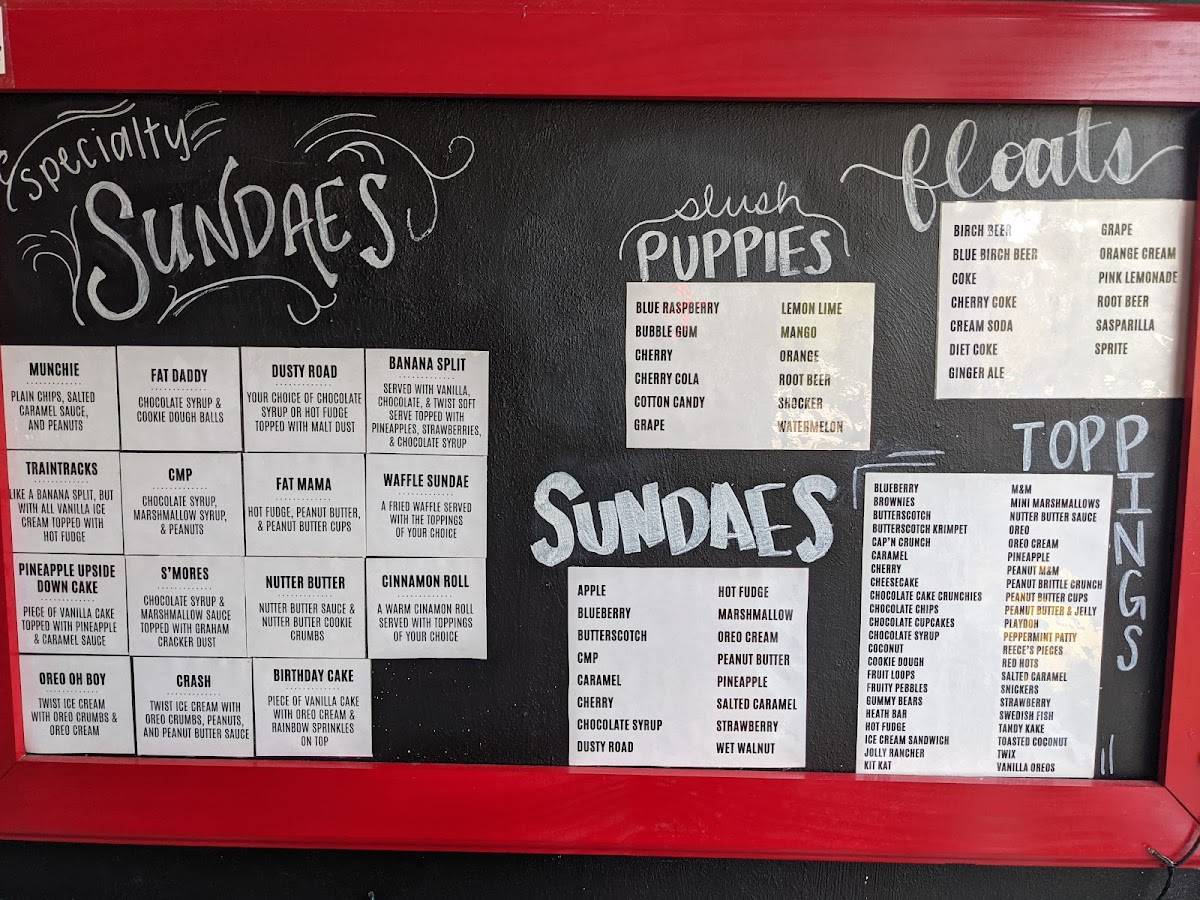 specialty
SUNDAES
MUNCHIE
PLAIN CHIPS, SALTED
CARAMEL SAUCE,
AND PEANUTS
FAT DADDY
CHOCOLATE SYRUP &
COOKIE DOUGH BALLS
DUSTY ROAD
YOUR CHOICE OF CHOCOLATE
SYRUP OR HOT FUDGE
TOPPED WITH MALT DUST
BANANA SPLIT
SERVED WITH VANILLA,
CHOCOLATE, & TWIST SOFT
SERVE TOPPED WITH
PINEAPPLES, STRAWBERRIES,
& CHOCOLATE SYRUP
TRAINTRACKS
LIKE A BANANA SPLIT, BUT
WITH ALL VANILLA ICE
CREAM TOPPED WITH
HOT FUDGE
CMP
CHOCOLATE SYRUP,
MARSHMALLOW SYRUP,
& PEANUTS
FAT MAMA
HOT FUDGE, PEANUT BUTTER,
& PEANUT BUTTER CUPS
WAFFLE SUNDAE
A FRIED WAFFLE SERVED
WITH THE TOPPINGS
OF YOUR CHOICE
PINEAPPLE UPSIDE
DOWN CAKE
PIECE OF VANILLA CAKE
TOPPED WITH PINEAPPLE
& CARAMEL SAUCE
S'MORES
CHOCOLATE SYRUP &
MARSHMALLOW SAUCE
TOPPED WITH GRAHAM
CRACKER DUST
NUTTER BUTTER
NUTTER BUTTER SAUCE &
NUTTER BUTTER COOKIE
CRUMBS
CINNAMON ROLL
A WARM CINAMON ROLL
SERVED WITH TOPPINGS
OF YOUR CHOICE
OREO OH BOY
TWIST ICE CREAM
WITH OREO CRUMBS &
OREO CREAM
CRASH
TWIST ICE CREAM WITH
OREO CRUMBS, PEANUTS,
AND PEANUT BUTTER SAUCE
BIRTHDAY CAKE
PIECE OF VANILLA CAKE
WITH OREO CREAM &
RAINBOW SPRINKLES
ON TOP
slush
PUPPIES
BLUE RASPBERRY
BUBBLE GUM
CHERRY
CHERRY COLA
COTTON CANDY
GRAPE
LEMON LIME
MANGO
ORANGE
ROOT BEER
SHOCKER
WATERMELON
floats
BIRCH BEER
BLUE BIRCH BEER
COKE
CHERRY COKE
CREAM SODA
DIET COKE
GINGER ALE
GRAPE
ORANGE CREAM
PINK LEMONADE
ROOT BEER
SASPARILLA
SPRITE
SUNDAES
APPLE
BLUEBERRY
BUTTERSCOTCH
CMP
CARAMEL
CHERRY
CHOCOLATE SYRUP
DUSTY ROAD
HOT FUDGE
MARSHMALLOW
OREO CREAM
PEANUT BUTTER
PINEAPPLE
SALTED CARAMEL
STRAWBERRY
WET WALNUT
TOPPINGS
BLUEBERRY
BROWNIES
BUTTERSCOTCH
BUTTERSCOTCH KRIMPET
CAP'N CRUNCH
CARAMEL
CHERRY
CHEESECAKE
CHOCOLATE CAKE CRUNCHIES
CHOCOLATE CHIPS
CHOCOLATE CUPCAKES
CHOCOLATE SYRUP
COCONUT
COOKIE DOUGH
FRUIT LOOPS
FRUITY PEBBLES
GUMMY BEARS
HEATH BAR
HOT FUDGE
ICE CREAM SANDWICH
JOLLY RANCHER
KIT KAT
M&M
MINI MARSHMALLOWS
NUTTER BUTTER SAUCE
OREO
OREO CREAM
PINEAPPLE
PEANUT M&M
PEANUT BRITTLE CRUNCH
PEANUT BUTTER CUPS
PEANUT BUTTER & JELLY
PLAYDOH
PEPPERMINT PATTY
REECE'S PIECES
RED HOTS
SALTED CARAMEL
SNICKERS
STRAWBERRY
SWEDISH FISH
TANDY KAKE
TOASTED COCONUT
TWIX
VANILLA OREOS